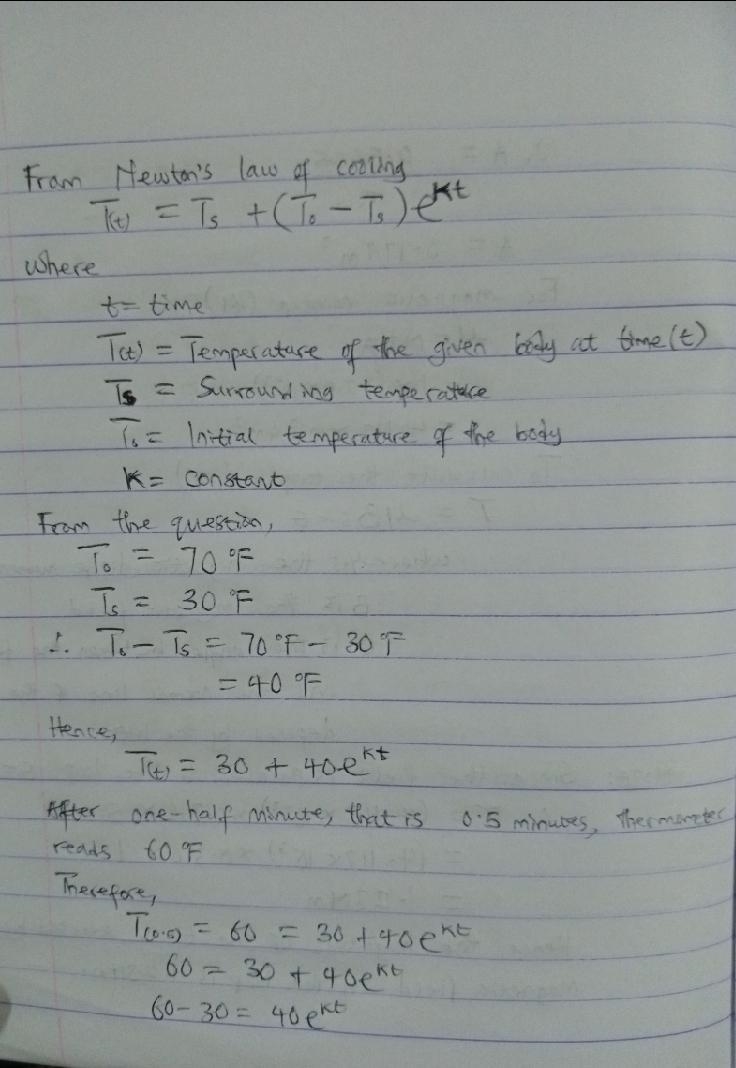 From Newton's law of cooling
T(t) = Ts + (To - Ts) e^kt
where
t = time
T(t) = Temperature of the given body at time (t)
Ts = Surrounding temperature
To = Initial temperature of the body
K = constant
From the question,
To = 70 °F
Ts = 30 °F
∴ To - Ts = 70 °F - 30 °F
= 40 °F
Hence,
T(t) = 30 + 40e^kt
After one-half minute, that is 0.5 minutes, thermometer
reads 60 °F
Therefore,
T(0.5) = 60 = 30 + 40e^kt
60 = 30 + 40e^kt
60 - 30 = 40e^kt